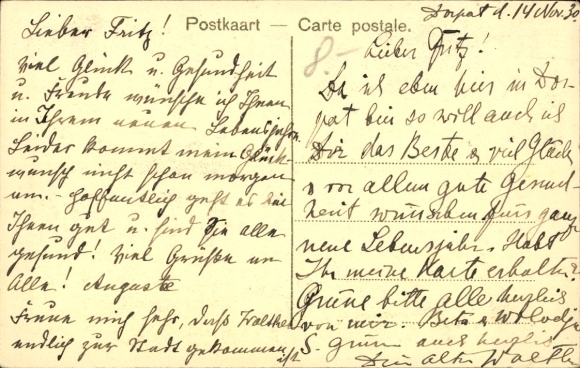 Postkaart — Carte postale.
Lieber Fritz!
Viel Glück u. Gesundheit
u. Freude wünsche ich Ihnen
in Ihrem neuen Lebensjahre
Leider kommt mein Glück-
wunsch nicht schon morgen
an. - Hoffentlich geht es bei
Ihnen gut u. sind Sie alle
gesund! Viel Grüße an
Alle! Auguste
Freue mich sehr, daß Walther
endlich zur Stadt gekommen ist
Dorpat d. 14 Nov. 30
8.-
Lieber Fritz!
Da ich eben hier in Dor-
pat bin so will auch ich
Dir das Beste & viel Glück
u vor allem gute Gesund-
heit wünschen fürs ganze
neue Lebensjahr. Habt
Ihr meine Karte erhalten?
Grüße bitte alle herzlich
von mir. Beta & Wolodja
S. grüßen auch herzlich
Dein alter Walther